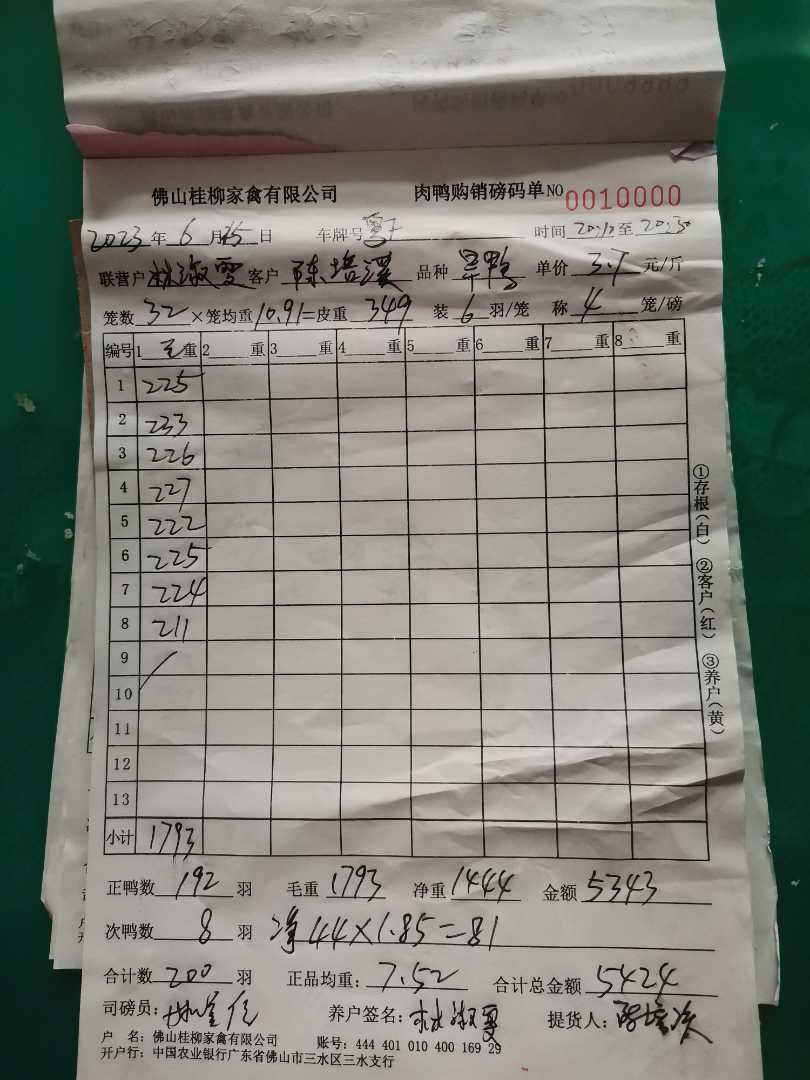 佛山桂柳家禽有限公司 肉鸭购销磅码单 NO 0010000
2023年6月25日 车牌号 时间 20:10至20:30
联营户 林淑雯 客户 陈培溪 品种 单价 3.7 元/斤
笼数 32 ×笼均重 10.91=皮重 349 装 6 羽/笼 称 4 笼/磅
编号 1 毛 重 2 重 3 重 4 重 5 重 6 重 7 重 8 重
1 225
2 233
3 226
4 227
5 222
6 225
7 224
8 211
9
10
11
12
13
小计 1793
正鸭数 192 羽 毛重 1793 净重 1444 金额 5343
次鸭数 8 羽 净44×1.85=81
合计数 200 羽 正品均重: 7.52 合计总金额 5424
司磅员: 养户签名: 林淑雯 提货人:
户 名: 佛山桂柳家禽有限公司 账号: 444 401 010 400 169 29
开户行: 中国农业银行广东省佛山市三水区三水支行
①存根(白) ②客户(红) ③养户(黄)